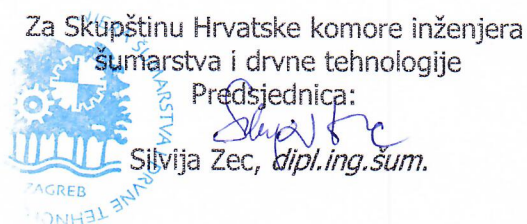 Za Skupštinu Hrvatske komore inženjera
šumarstva i drvne tehnologije
Predsjednica:
Silvija Zec, dipl.ing.šum.
ŠUMARSTVA I DRVNE
ZAGREB